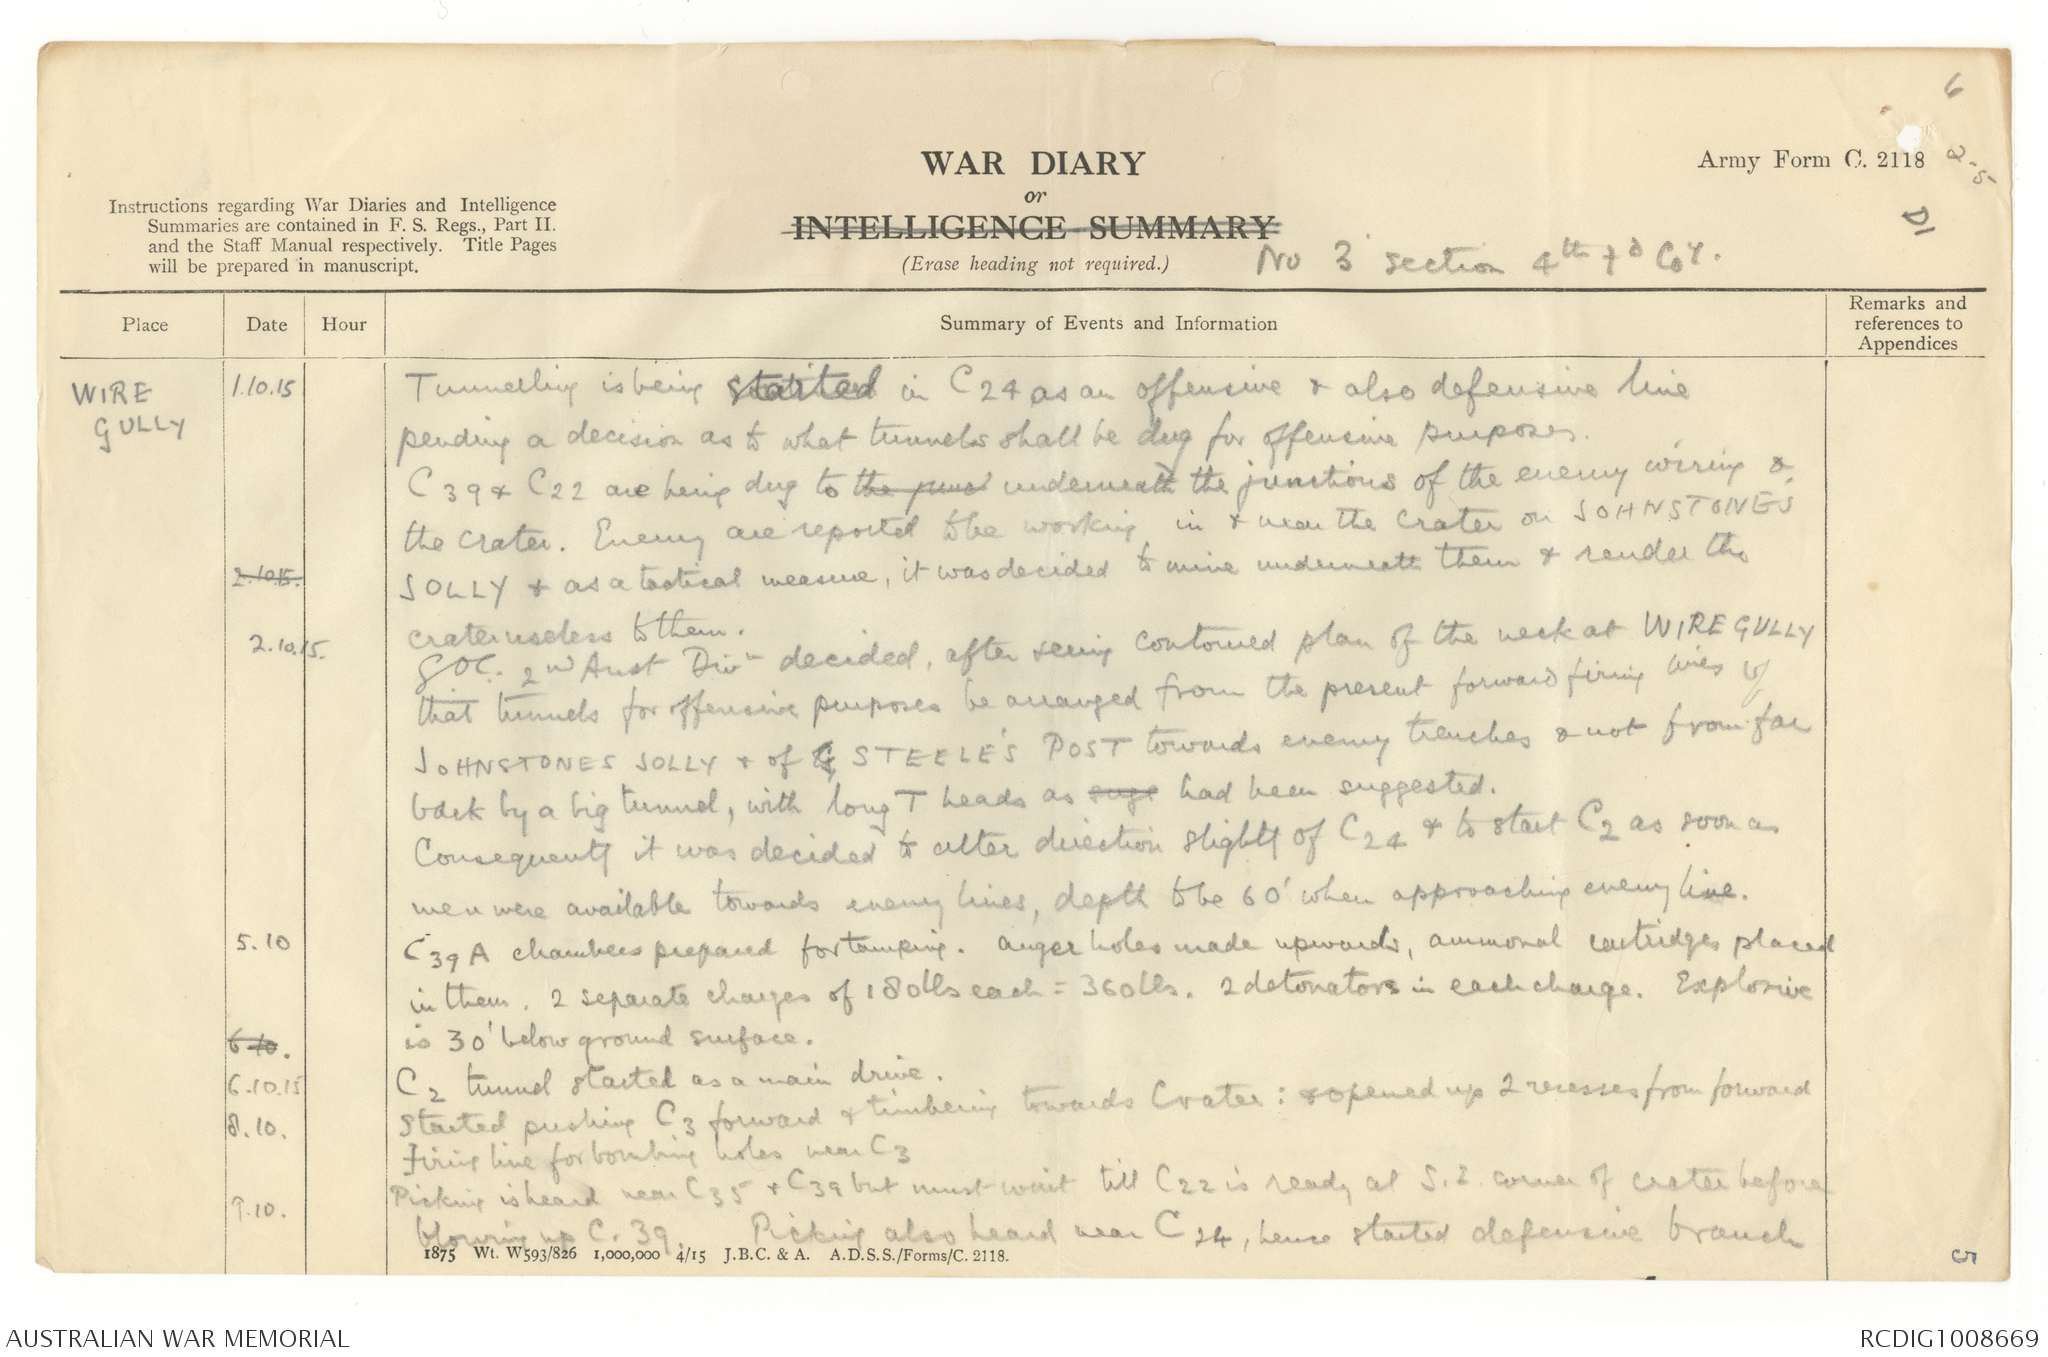 6
Army Form C. 2118
2-5-
D1
WAR DIARY
or
INTELLIGENCE SUMMARY
(Erase heading not required.)
Instructions regarding War Diaries and Intelligence
Summaries are contained in F. S. Regs., Part II.
and the Staff Manual respectively. Title Pages
will be prepared in manuscript.
No 3 section 4th Fd Coy.
Place Date Hour Summary of Events and Information Remarks and references to Appendices
WIRE GULLY 1.10.15 Tunnelling is being started in C24 as an offensive & also defensive line
pending a decision as to what tunnels shall be dug for offensive purposes.
C39 & C22 are being dug to the underneath the junctions of the enemy wiring &
the crater. Enemy are reported to be working in & near the crater on JOHNSTONE'S
2.10.15. JOLLY & as a tactical measure, it was decided to mine underneath them & render the
crater useless to them.
2.10.15. GOC. 2nd Aust Divn decided, after seeing contoured plan of the neck at WIRE GULLY
that tunnels for offensive purposes be arranged from the present forward firing lines of
JOHNSTONES JOLLY & of STEELE'S POST towards enemy trenches & not from far
back by a big tunnel, with long T heads as sugs had been suggested.
Consequently it was decided to alter direction slightly of C24 & to start C2 as soon as
men were available towards enemy lines, depth to be 60' when approaching enemy line.
5.10 C39A chambers prepared for tamping. auger holes made upwards, ammonal cartridges placed
in them. 2 separate charges of 180lbs each = 360lbs. 2 detonators in each charge. Explosive
is 30' below ground surface.
6.10.
6.10.15 C2 tunnel started as a main drive.
8.10. Started pushing C3 forward & timbering towards Crater: & opened up 2 recesses from forward
Firing line for bombing holes near C3
9.10. Picking is heard near C35 & C39 but must wait till C22 is ready at S.E. corner of crater before
blowing up C.39. Picking also heard near C24, hence started defensive branch
1875 Wt. W593/826 1,000,000 4/15 J.B.C. & A. A.D.S.S./Forms/C. 2118.
AUSTRALIAN WAR MEMORIAL
RCDIG1008669